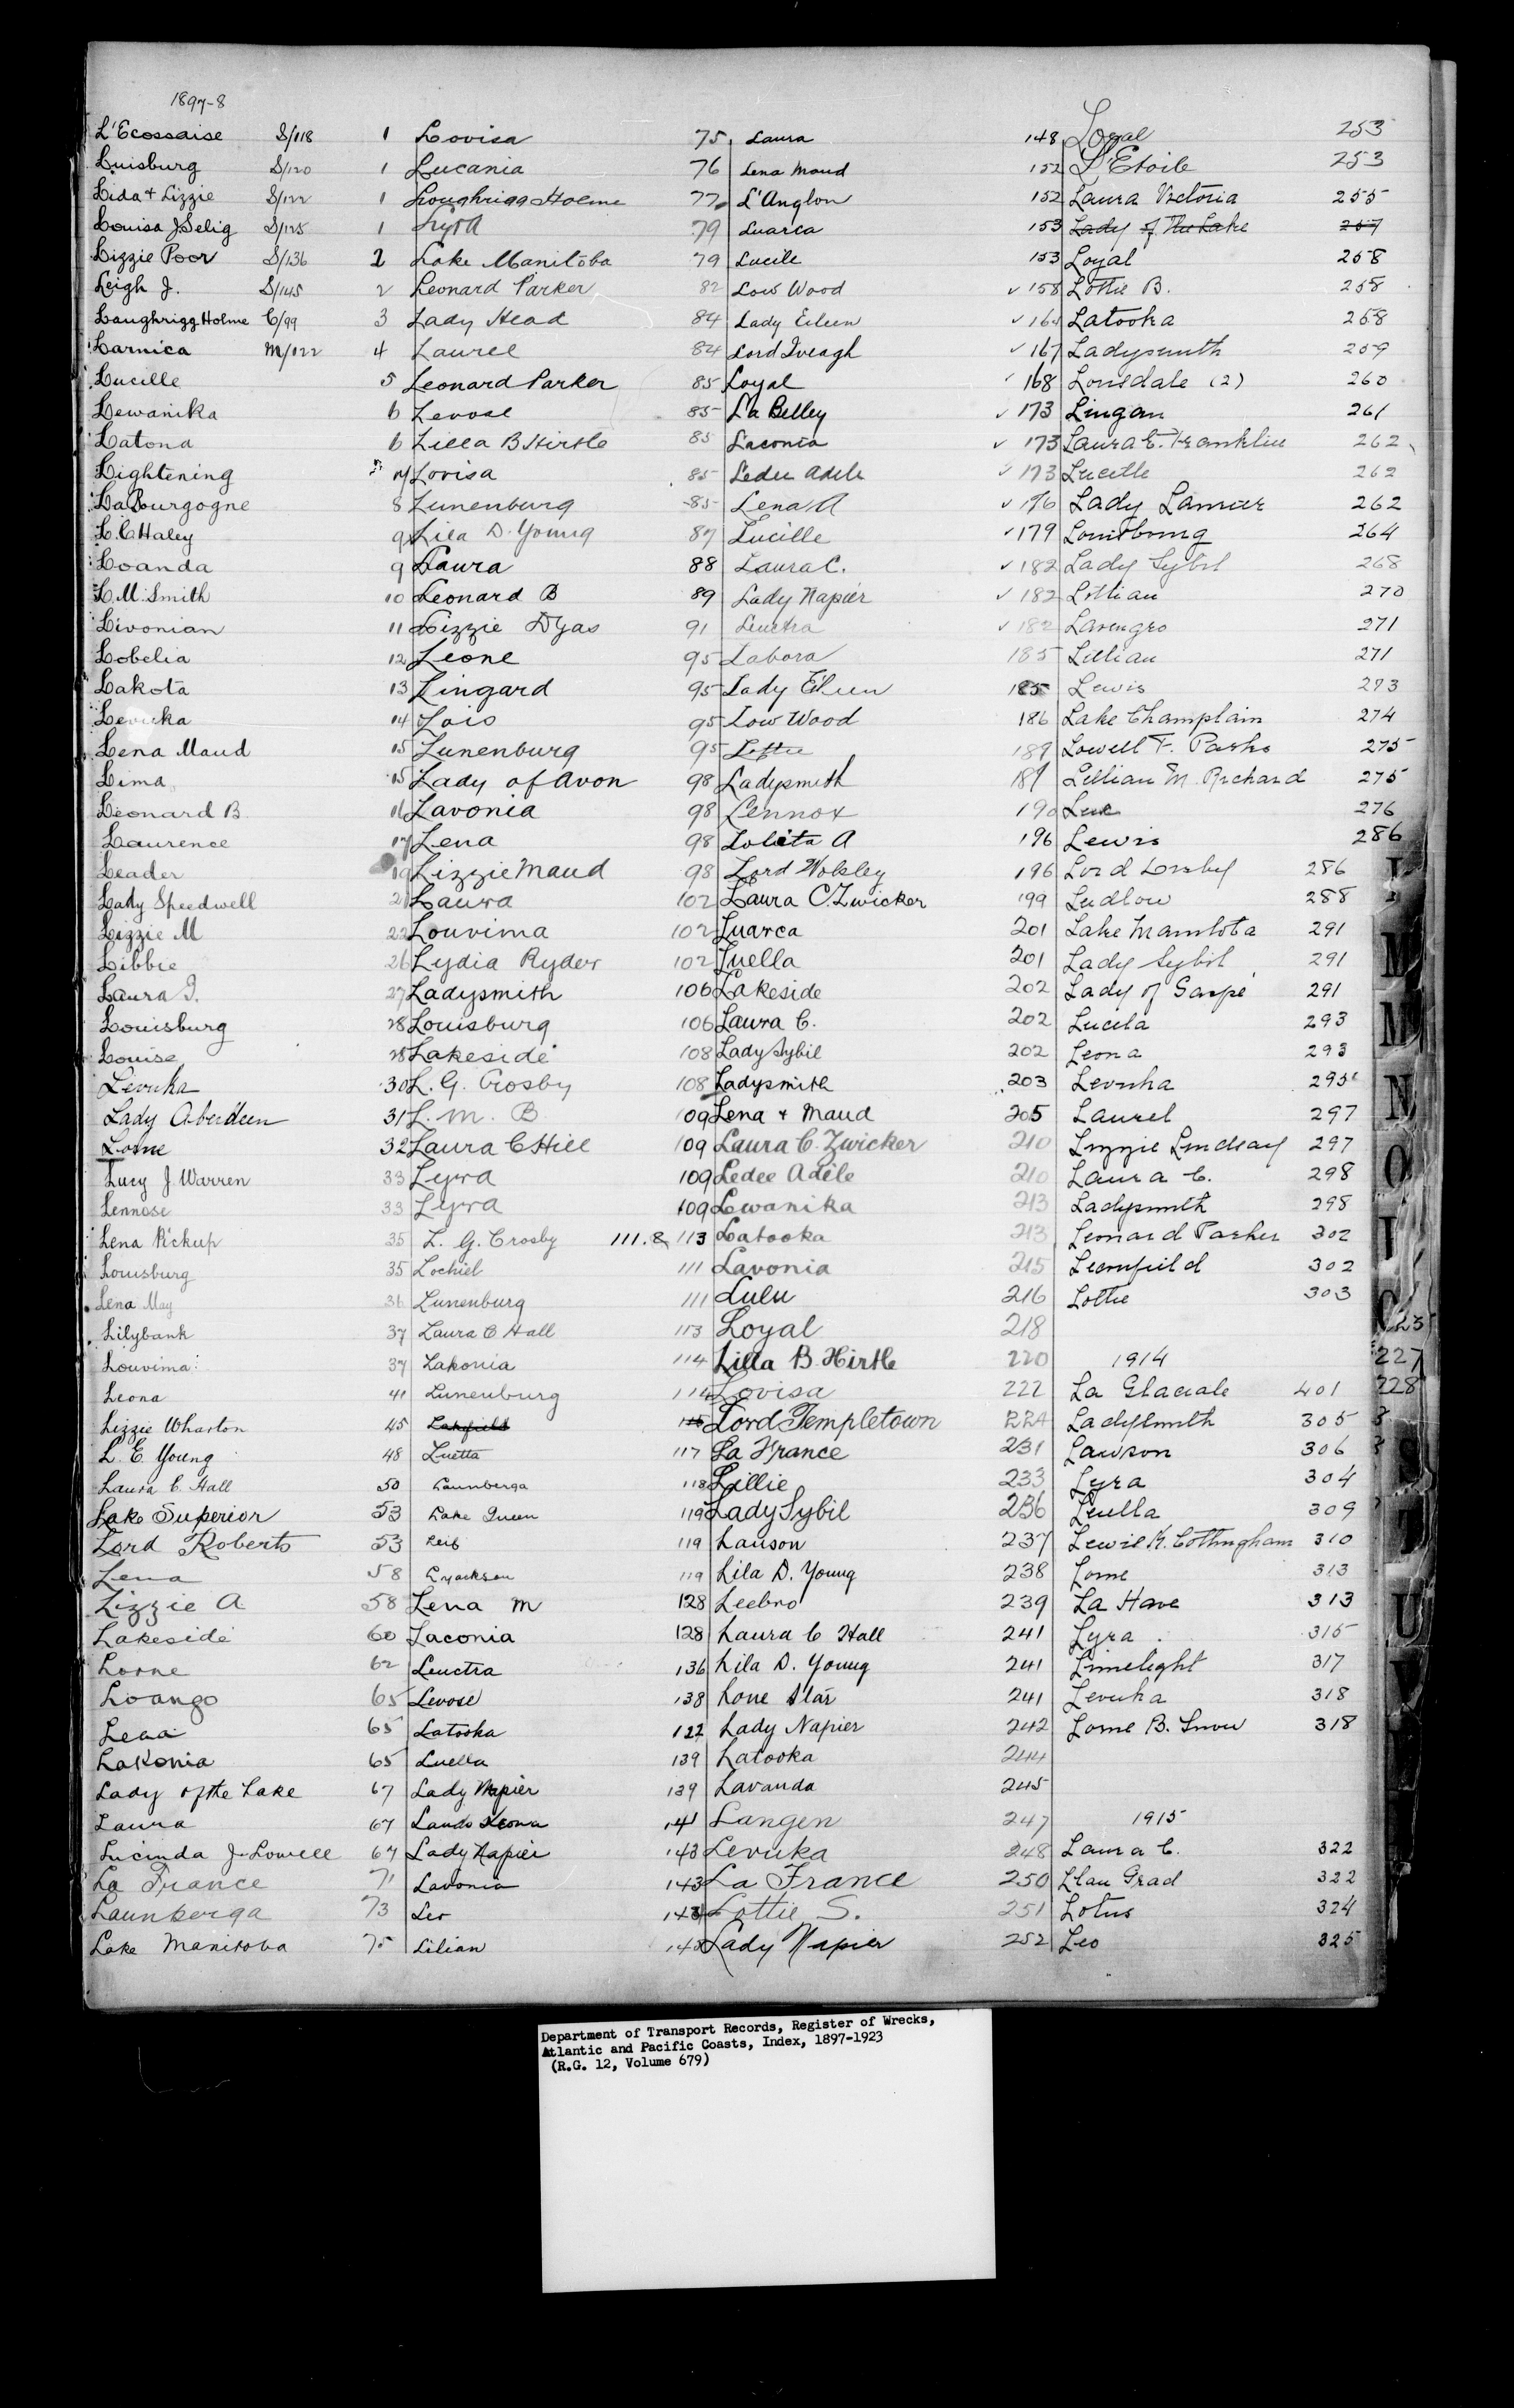 1897-8
L'Ecossaise S/118 1
Luisburg S/120 1
Lida + Lizzie S/122 1
Louisa J Selig S/125 1
Lizzie Poor S/136 2
Leigh J. S/145 2
Laughrigg Holme C/99 3
Larnica M/122 4
Lucille 5
Lewanika 6
Latona 6
Lightening 7
La Bourgogne 8
L. C Haley 9
Loanda 9
L. M. Smith 10
Livonian 11
Lobelia 12
Lakota 13
Levuka 14
Lena Maud 15
Lima 15
Leonard B 16
Laurence 17
Leader 19
Lady Speedwell 21
Lizzie M 22
Libbie 26
Laura J. 27
Louisburg 28
Louise 28
Levuka 30
Lady Aberdeen 31
Lorne 32
Lucy J. Warren 33
Lennose 33
Lena Pickup 35
Louisburg 35
Lena May 36
Lilybank 37
Louvima 37
Leona 41
Lizzie Wharton 45
L. E. Young 48
Laura C. Hall 50
Lake Superior 53
Lord Roberts 53
Lena 58
Lizzie A 58
Lakeside 60
Lorne 62
Loango 65
Lena 65
Lakonia 65
Lady of the Lake 67
Laura 67
Lucinda J. Lowell 67
La France 71
Launberga 73
Lake Manitoba 75
Lovisa 75
Lucania 76
Loughrigg Holme 77
Lyra 79
Lake Manitoba 79
Leonard Parker 82
Lady Head 84
Laurel 84
Leonard Parker 85
Levose 85
Lilla B Hirtle 85
Lovisa 85
Lunenburg 85
Lila D. Young 87
Laura 88
Leonard B 89
Lizzie Dyas 91
Leone 95
Lingard 95
Lois 95
Lunenburg 95
Lady of Avon 98
Lavonia 98
Lena 98
Lizzie Maud 98
Laura 102
Louvima 102
Lydia Ryder 102
Ladysmith 106
Louisburg 106
Lakeside 108
L. G. Crosby 108
L. M. B 109
Laura C Hill 109
Lyra 109
Lyra 109
L. G. Crosby 111. & 113
Lochiel 111
Lunenburg 111
Laura C Hall 113
Lakonia 114
Lunenburg 114
Lakefield
Luetta 117
Launberga 118
Lake Queen 119
Leif 119
119
Lena M 128
Laconia 128
Leuctra 136
Levose 138
Latooka 122
Luella 139
Lady Napier 139
141
Lady Napier 143
Lavonia 143
Leo 143
Lilian 148
Laura 148
Lena Maud 152
L'Anglon 152
Luarca 153
Lucile 153
Low Wood 158
Lady Eileen 164
Lord Iveagh 167
Loyal 168
La Belley 173
Laconia 173
Ledee Adele 173
Lena A 176
Lucille 179
Laura C. 182
Lady Napier 182
Leuctra 182
Labora 185
Lady Eileen 185
Low Wood 186
Lottie 189
Ladysmith 189
Lennox 190
Lolita A 196
Lord Wolsley 196
Laura C. Zwicker 199
Luarca 201
Luella 201
Lakeside 202
Laura C. 202
Lady Sybil 202
Ladysmith 203
Lena + Maud 205
Laura C. Zwicker 210
Ledee Adele 210
Lewanika 213
Latooka 213
Lavonia 215
Lulu 216
Loyal 218
Lilla B. Hirtle 220
Lovisa 222
Lord Templetown 224
La France 231
Lillie 233
Lady Sybil 236
Lauson 237
Lila D. Young 238
Leebro 239
Laura C Hall 241
Lila D. Young 241
Lone Star 241
Lady Napier 242
Latooka 244
Lavanda 245
Langen 247
Levuka 248
La France 250
Lottie S. 251
Lady Napier 252
Loyal 253
L'Etoile 253
Laura Victoria 255
Lady of The Lake 257
Loyal 258
Lottie B. 258
Latooka 258
Ladysmith 259
Lonsdale (2) 260
Lingan 261
Laura E. Franklin 262
Lucille 262
Lady Lanier 262
Louisbourg 264
Lady Sybil 268
Lillian 270
Lavengro 271
Lillian 271
Lewis 273
Lake Champlain 274
Lowell F. Parks 275
Lillian M. Richard 275
276
Lewis 286
Lord 286
Ludlow 288
Lake Manitoba 291
Lady Sybil 291
Lady of Gaspe 291
Lucila 293
Leona 293
Levuka 295
Laurel 297
Lizzie Lindsay 297
Laura C. 298
Ladysmith 298
Leonard Parker 302
302
Lottie 303
1914
La Glaciale 401
Ladysmith 305
Lawson 306
Lyra 304
Luella 309
Lewis K. Cottingham 310
Lorne 313
La Have 313
Lyra 315
Limelight 317
Levuka 318
Lorne B. Snow 318
1915
Laura C. 322
Llan Grad 322
Lotus 324
Leo 325
M
M
N
O
227
228
U
Department of Transport Records, Register of Wrecks,
Atlantic and Pacific Coasts, Index, 1897-1923
(R.G. 12, Volume 679)